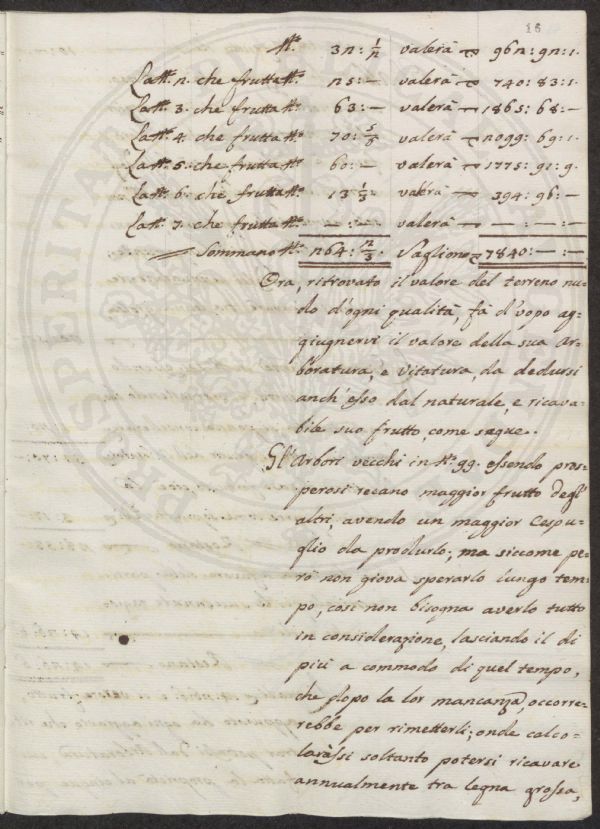 18
℔. 32: 1/2 valerà 962: 92: 1.
L'att. 2. che frutta ℔. 25: — valerà 740: 83: 1.
L'att. 3. che frutta ℔. 63: — valerà 1865: 68: —
L'att. 4. che frutta ℔. 70: 5/6 valerà 2099: 69: 1.
L'att. 5. che frutta ℔. 60: — valerà 1775: 91: 9.
L'att. 6. che frutta ℔. 13 1/3 valerà 394: 96: —
L'att. 7. che frutta ℔. —: — valerà —: —: —
Sommano ℔. 264: 2/3. Vagliono 7840: —: —
Ora, ritrovato il valore del terreno nu=
do d'ogni qualità, fà d'vopo ag=
giugnervi il valore della sua Ar=
boratura, e Vitatura, da dedursi
anch'esso dal naturale, e ricava=
bile suo frutto, come segue.
Gl'Arbori vecchi in N. 99. essendo pros=
perosi recano maggior frutto degl'
altri, avendo un maggior Cespu=
glio da produrlo; ma siccome pe=
rò non giova sperarlo lungo tem=
po, così non bisogna averlo tutto
in considerazione, lasciando il di
più a commodo di quel tempo,
che dopo la lor mancanza, occorre=
rebbe per rimetterli; onde calco=
larassi soltanto potersi ricavare
annualmente tra legna grossa,